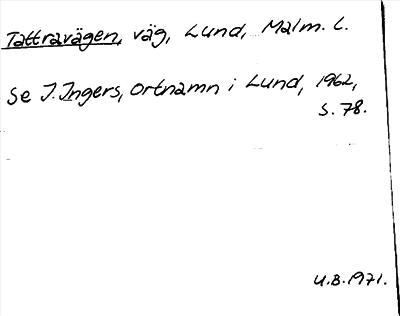 Tattravägen, väg, Lund, Malm. L.
Se J. Ingers, Ortnamn i Lund, 1962,
S. 78.
U.B. 1971.